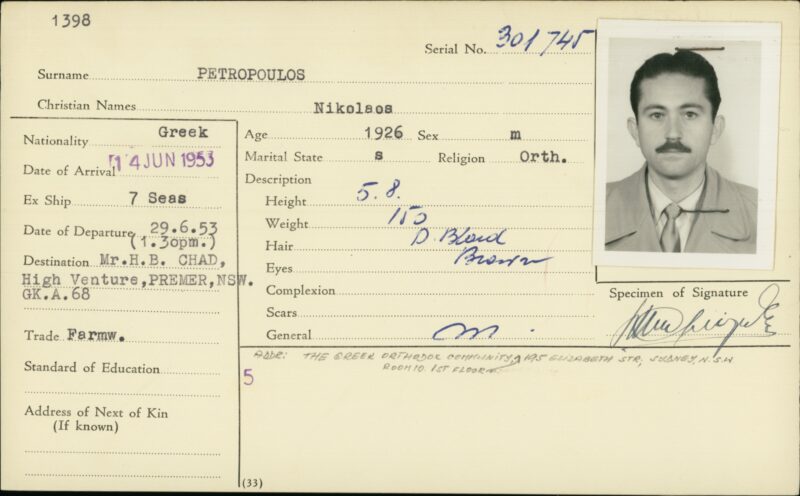 1398
Serial No. 301745
Surname PETROPOULOS
Christian Names Nikolaos
Nationality Greek
Date of Arrival 14 JUN 1953
Ex Ship 7 Seas
Date of Departure 29.6.53
(1.30pm.)
Destination Mr.H.B. CHAD,
High Venture,PREMER,NSW.
GK.A.68
Trade Farmw.
Standard of Education
Address of Next of Kin
(If known)
Age 1926 Sex m
Marital State s Religion Orth.
Description
Height 5.8.
Weight 150
Hair D. Blond
Eyes Brown
Complexion
Scars
General
Specimen of Signature
ADDR: THE GREEK ORTHODOX COMMUNITY, 195 ELIZABETH STR, SYDNEY, N.S.W
ROOM 10. 1ST FLOOR
5
(33)